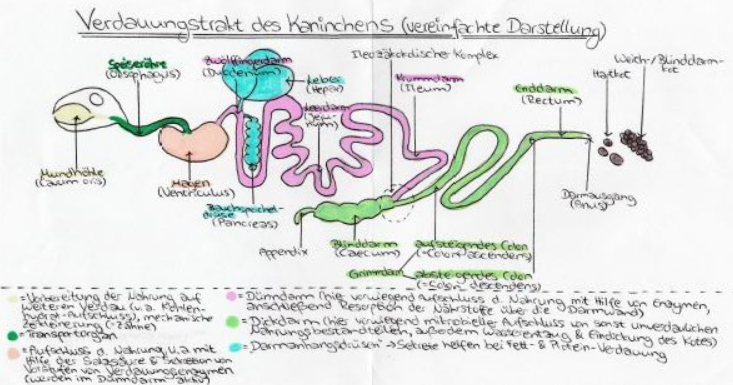 Verdauungstrakt des Kaninchens (vereinfachte Darstellung)
Speiseröhre
(Oesophagus)
Zwölffingerdarm
(Duodenum)
Leber
(Hepar)
Leerdarm
(Jeju-
num)
Ileozäkokolischer Komplex
Krummdarm
(Ileum)
Enddarm
(Rectum)
Hartkot
Weich-/Blinddarm-
kot
Mundhöhle
(Cavum oris)
Magen
(Ventriculus)
Bauchspeichel-
drüse
(Pancreas)
Appendix
Blinddarm
(Caecum)
Grimmdarm
aufsteigendes Colon
(=Colon ascendens)
absteigendes Colon
(=Colon descendens)
Darmausgang
(Anus)
=Vorbereitung der Nahrung auf
weiteren Verdau (u.a. Kohlen-
hydrat-Aufschluss), mechanische
Zerkleinerung (Zähne)
=Transportorgan
=Aufschluss d. Nahrung u.a. mit
Hilfe der Salzsäure & Sekretion von
Vorstufen von Verdauungsenzymen
(werden im Dünndarm aktiv)
=Dünndarm (hier vorwiegend Aufschluss d. Nahrung mit Hilfe von Enzymen,
anschließend Resorption der Nährstoffe über die Darmwand)
=Dickdarm (hier vorwiegend mikrobieller Aufschluss von sonst unverdaulichen
Nahrungsbestandteilen, außerdem Wasserentzug & Eindickung des Kotes)
=Darmanhangsdrüsen → Sekrete helfen bei Fett- & Protein-Verdauung